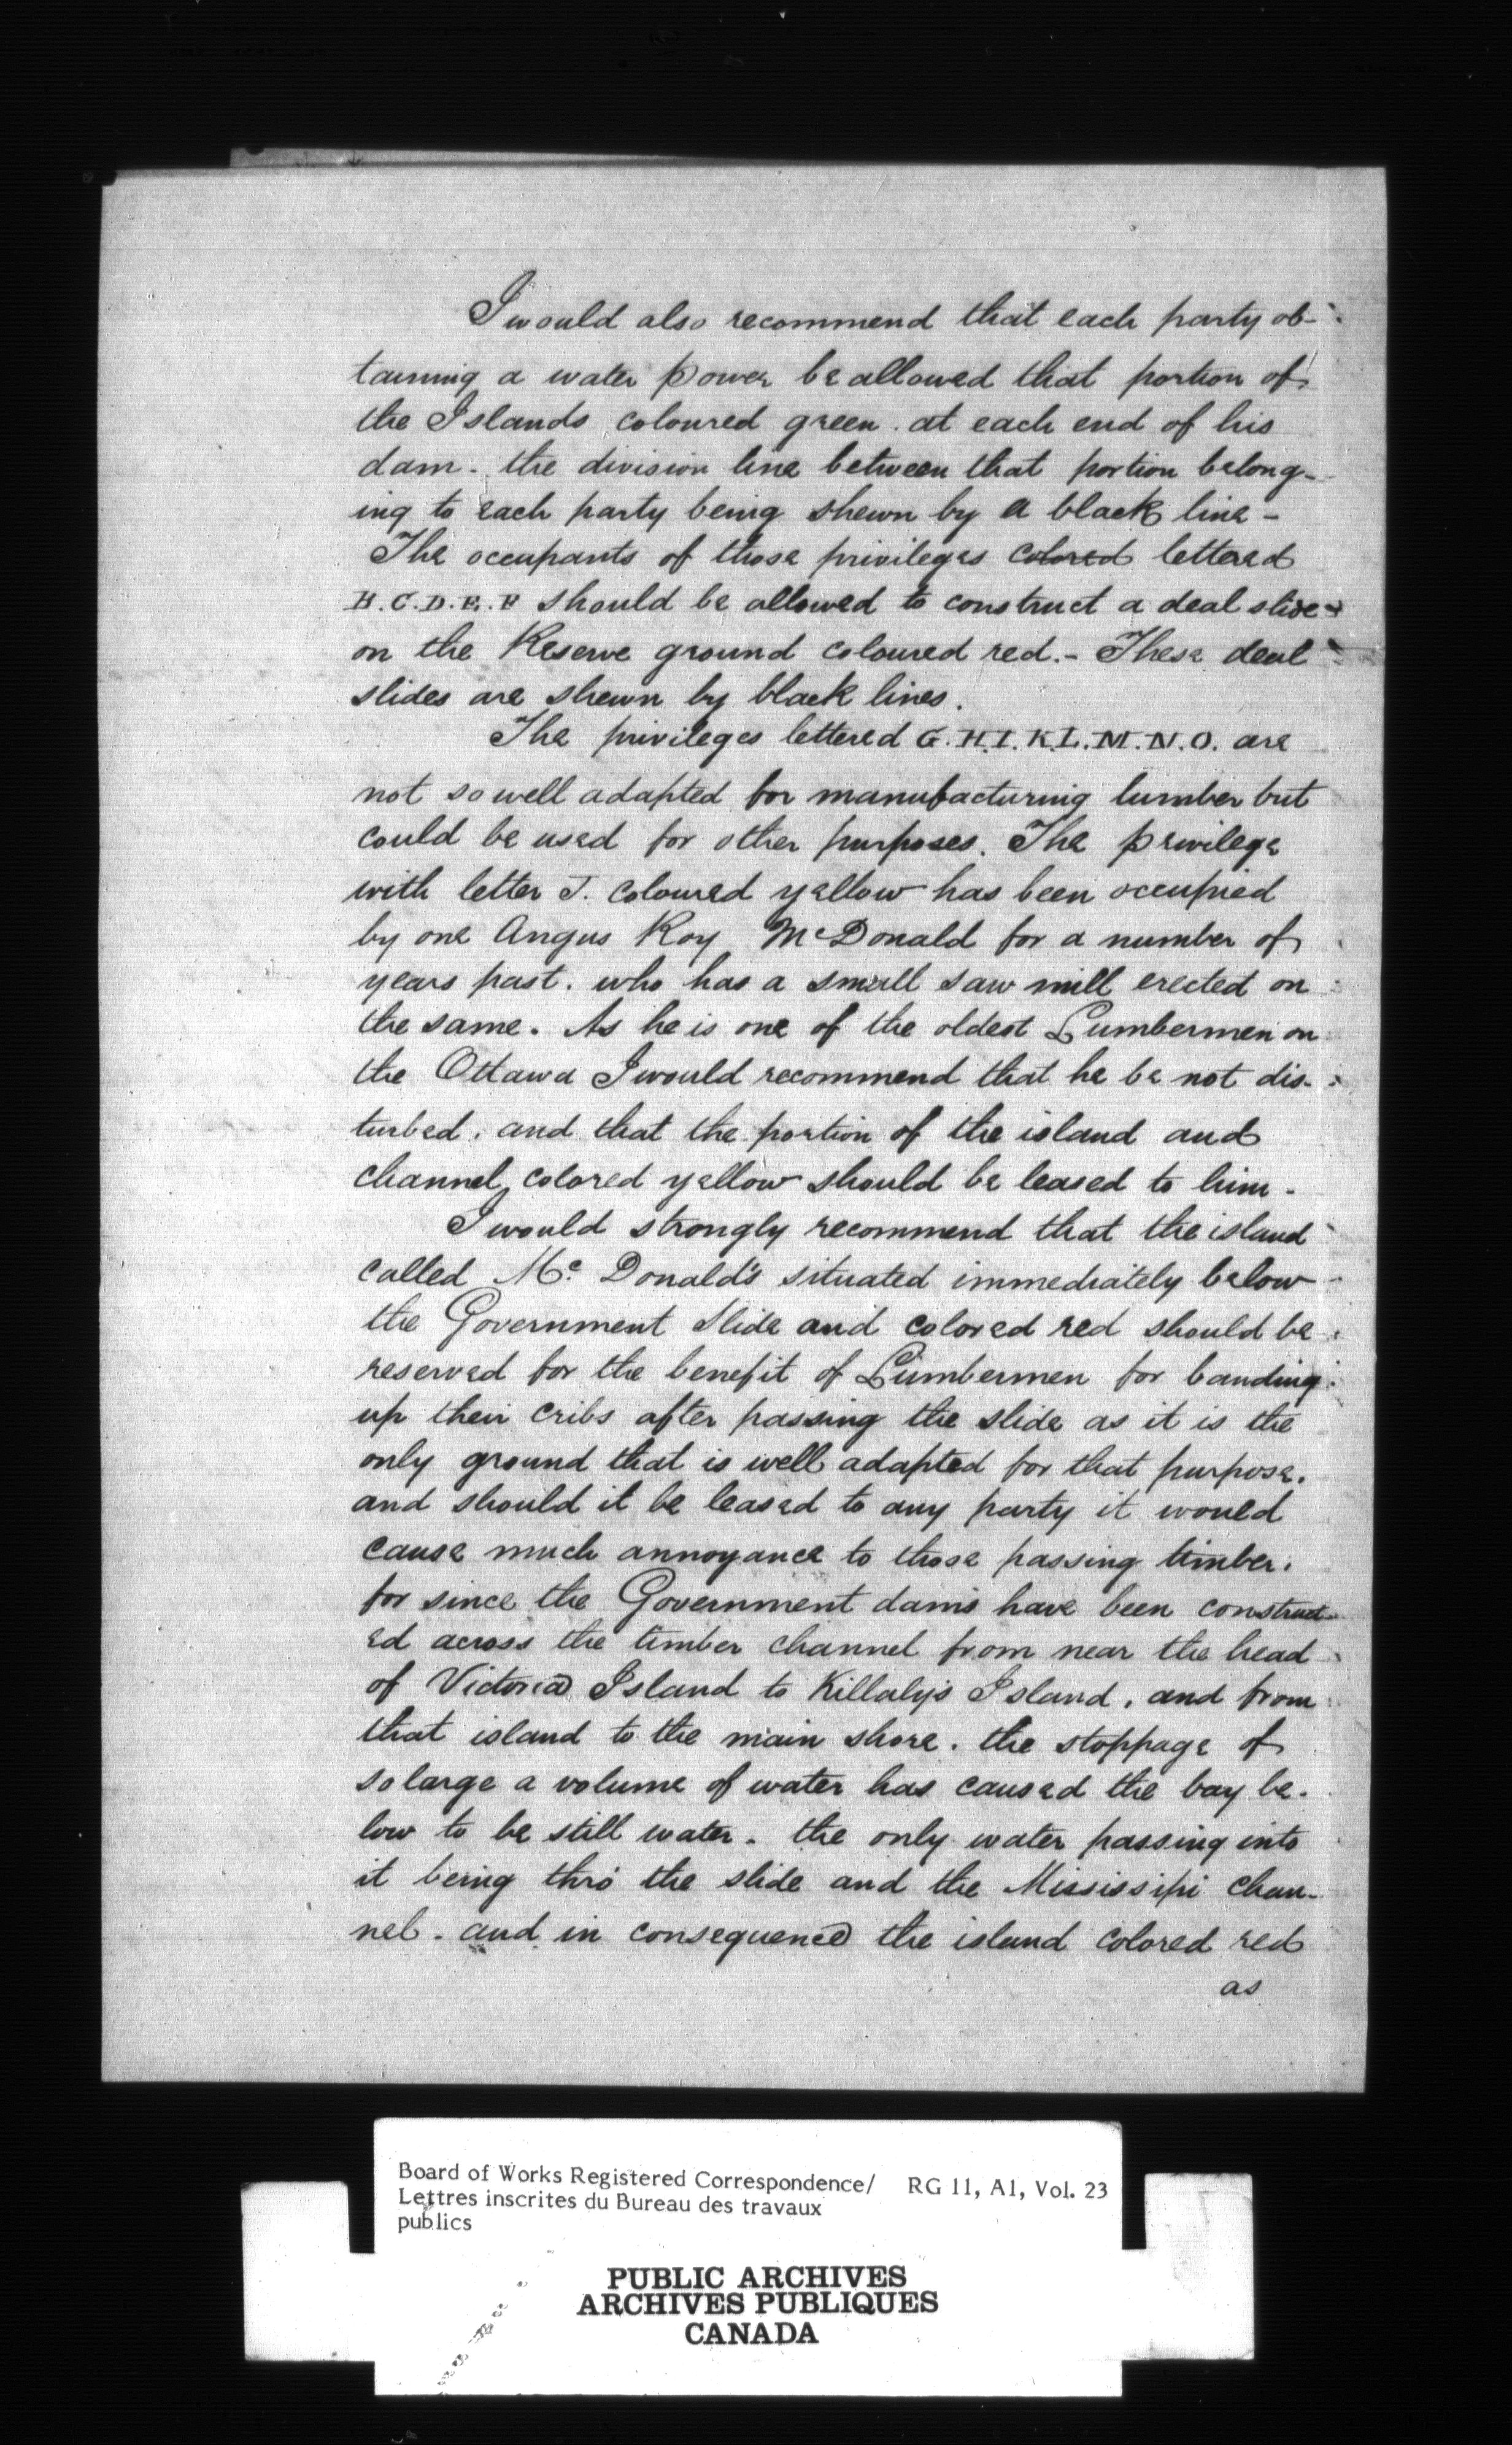 I would also recommend that each party ob-
taining a water power be allowed that portion of
the Islands coloured green. at each end of his
dam. the division line between that portion belong-
ing to each party being shewn by a black line -
The occupants of those privileges colored lettered
B.C.D.E.F should be allowed to construct a deal slide
on the Reserve ground coloured red. - These deal
slides are shewn by black lines.
The privileges lettered G.H.I.K.L.M.N.O. are
not so well adapted for manufacturing lumber but
could be used for other purposes. The privilege
with letter J. coloured yellow has been occupied
by one Angus Roy McDonald for a number of
years past. who has a small saw mill erected on
the same. As he is one of the oldest Lumbermen on
the Ottawa I would recommend that he be not dis-
turbed. and that the portion of the island and
channel, colored yellow should be leased to him.
I would strongly recommend that the island
called Mc. Donald's situated immediately below
the Government Slide and colored red should be
reserved for the benefit of Lumbermen for banding
up their cribs after passing the slide as it is the
only ground that is well adapted for that purpose.
and should it be leased to any party it would
cause much annoyance to those passing timber.
for since the Government dams have been construct-
ed across the timber channel from near the head
of Victoria Island to Killaly's Island. and from
that island to the main shore. the stoppage of
so large a volume of water has caused the bay be-
low to be still water. the only water passing into
it being thro' the slide and the Mississipi chan-
nel. and in consequence the island colored red
as
Board of Works Registered Correspondence/ RG 11, A1, Vol. 23
Lettres inscrites du Bureau des travaux
publics
PUBLIC ARCHIVES
ARCHIVES PUBLIQUES
CANADA